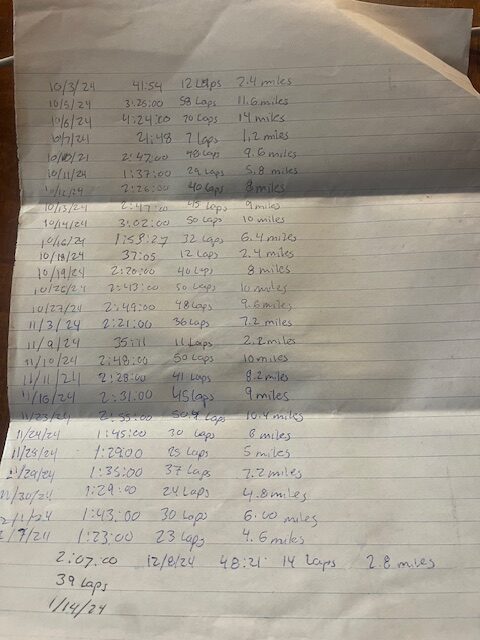 10/3/24 41:54 12 Laps 2.4 miles
10/5/24 3:25:00 58 Laps 11.6 miles
10/6/24 4:24:00 70 Laps 14 miles
10/7/24 21:48 7 Laps 1.2 miles
2:47:00 48 Laps 9.6 miles
10/11/24 1:37:00 29 Laps 5.8 miles
10/12/24 2:26:00 40 Laps 8 miles
10/13/24 2:47:00 45 Laps 9 miles
10/14/24 3:02:00 50 Laps 10 miles
10/16/24 1:58:27 32 Laps 6.4 miles
10/18/24 37:05 12 Laps 2.4 miles
10/19/24 2:20:00 40 Laps 8 miles
10/26/24 2:43:00 50 Laps 10 miles
10/27/24 2:49:00 48 Laps 9.6 miles
11/3/24 2:21:00 36 Laps 7.2 miles
11/9/24 35:11 11 Laps 2.2 miles
11/10/24 2:48:00 50 Laps 10 miles
11/11/24 2:28:00 41 Laps 8.2 miles
11/16/24 2:31:00 45 Laps 9 miles
11/23/24 2:55:00 Laps 10.4 miles
11/24/24 1:45:00 30 Laps 6 miles
11/28/24 1:29:00 25 Laps 5 miles
11/29/24 1:35:00 37 Laps 7.2 miles
11/30/24 1:29:00 24 Laps 4.8 miles
2/1/24 1:43:00 30 Laps 6.00 miles
2/7/24 1:23:00 23 Laps 4.6 miles
2:07:00 12/8/24 48:21 14 Laps 2.8 miles
39 Laps
1/14/24